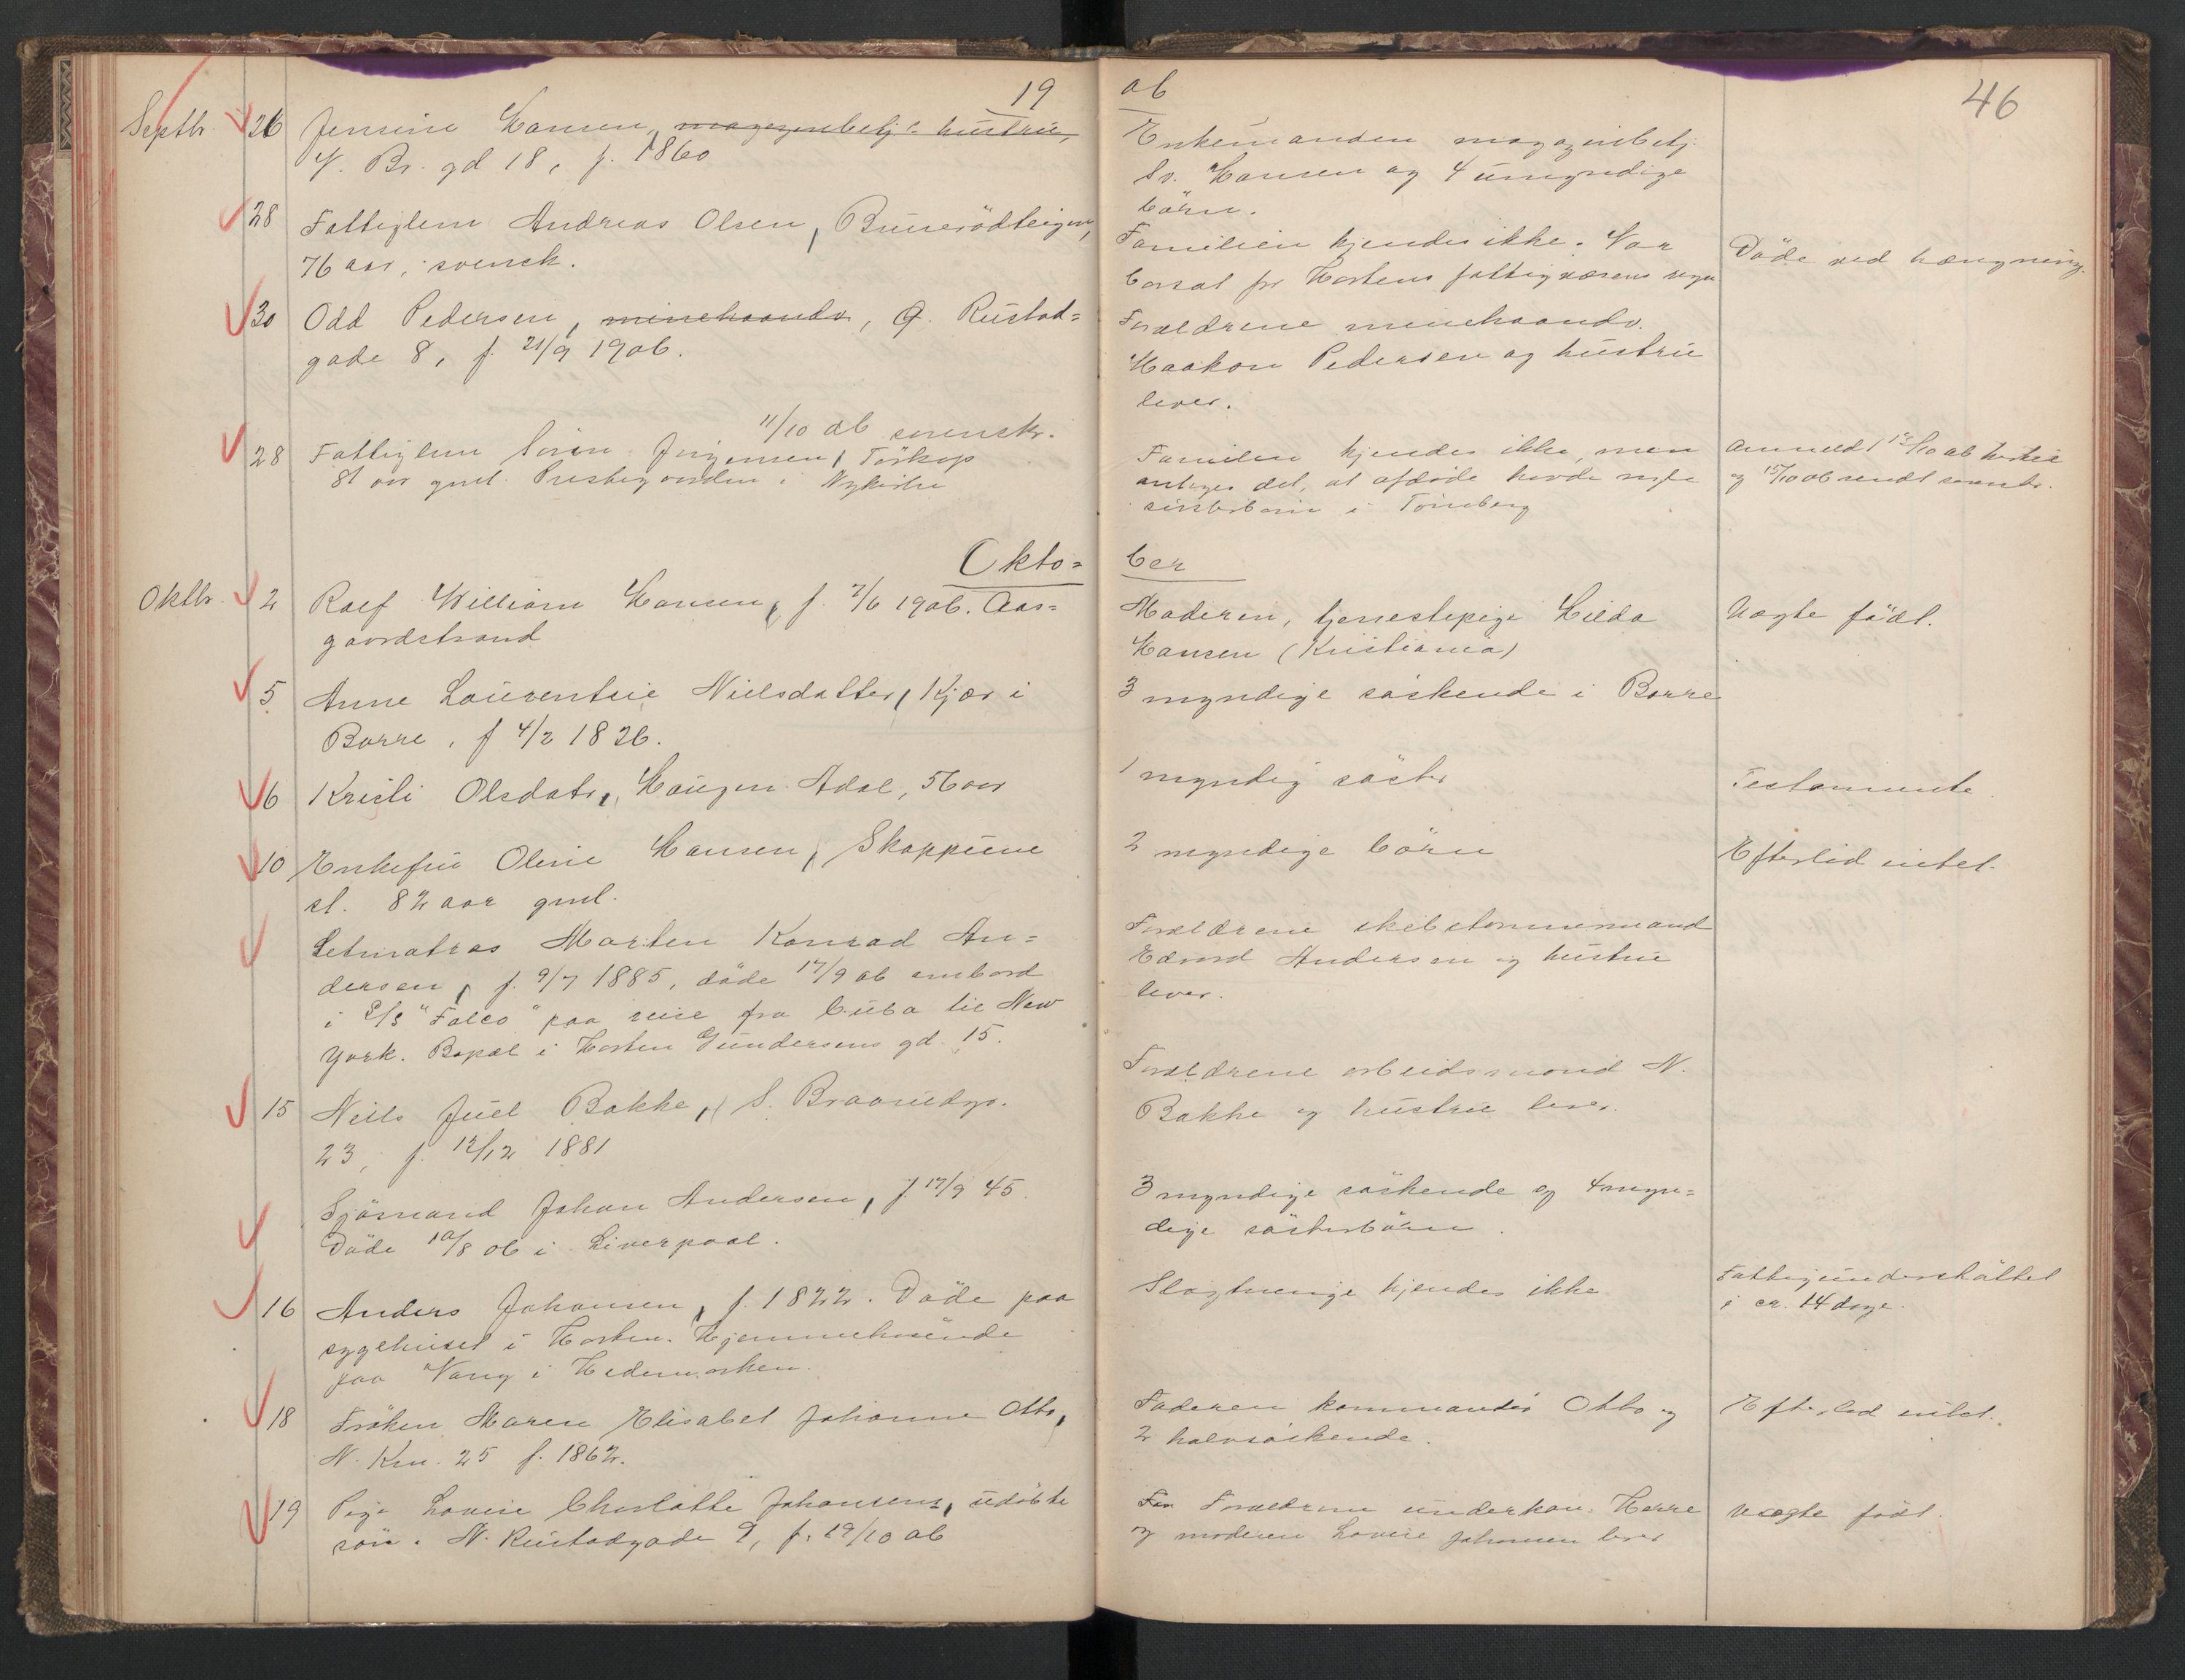 19
06
46
Septbr. 26 Jensine Hansen, magazinbetj.s hustru,
V. Br. gd 18, f. 1860
Enkemanden magazinbetj.
Sv. Hansen og 4 umyndige
börn.
28 Fattiglem Andreas Olsen, Bunerödteigen,
76 aar, svensk.
Familien kjendes ikke. Var
borsat for Hortens fattigvæsens regn
Döde ved hængning.
30 Odd Pedersen, minehaandv, O. Rustad=
gade 8, f. 21/9 1906.
Forældrene minehaandv.
Haakon Pedersen og hustru
lever.
11/10 06 sorenskr.
28 Fattiglem Sören Jörgensen, Torkop
81 aar gml. Prestegaarden i Nykirke
Familien kjendes ikke, men
antages det, at afdöde havde nogle
sösterbörn i Tönsberg
anmeldt 13/10 06
og 15/10 06 sendt sorenskr.
Okto=
ber
Oktbr. 2 Rolf William Hansen, f. 2/6 1906. Aas=
gaardstrand
Moderen, tjenestepige Hilda
Hansen (Kristiania)
Uægte födt.
5 Anne Laurentsie Nielsdatter, Kjær i
Borre, f 4/2 1826.
3 myndige söskende i Borre
6 Kristi Olsdatr, Haugen Adal, 56 aar
1 myndig söster
Testamente
10 Enkefru Oline Hansen, Skoppum
st. 82 aar gml.
2 myndige börn
Efterlod intet.
Letmatros Morten Konrad An=
dersen, f. 9/7 1885, döde 17/9 06 ombord
i S/S "Falco" paa reise fra Cuba til New
York. Bopæl i Horten Gundersens gd. 15.
Forældrene skibstømmermand
Edvard Andersen og hustru
lever.
15 Niels Juel Bakke, S. Braarudgs.
23, f. 12/12 1881
Forældrene arbeidsmand N.
Bakke og hustru lever.
Sjömand Johan Andersen, f. 17/9 45.
Döde 10/8 06 i Liverpool.
3 myndige söskende og 4 myn=
dige sösterbörn.
16 Anders Johansen, f. 1822. Döde paa
sygehuset i Horten. Hjemmehörende
paa Vang i Hedemarken.
Slægtninge kjendes ikke
Fattigunderstöttet
i ca. 14 dage.
18 Fröken Maren Elisabet Johanne Otto,
N. Km. 25 f. 1862.
Faderen kommandör Otto og
2 halvsöskende.
Efterlod intet.
19 Pige Lovise Charlotte Johansens, udöbte
sön. N. Rustadgade 9, f. 19/10 06
For Forældrene underkan. Herre
og moderen Lovise Johansen lever
Uægte födt.